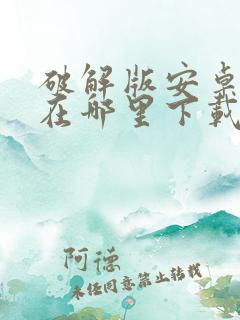 破解版安卓
在哪里下载
阿德
未经同意禁止转载